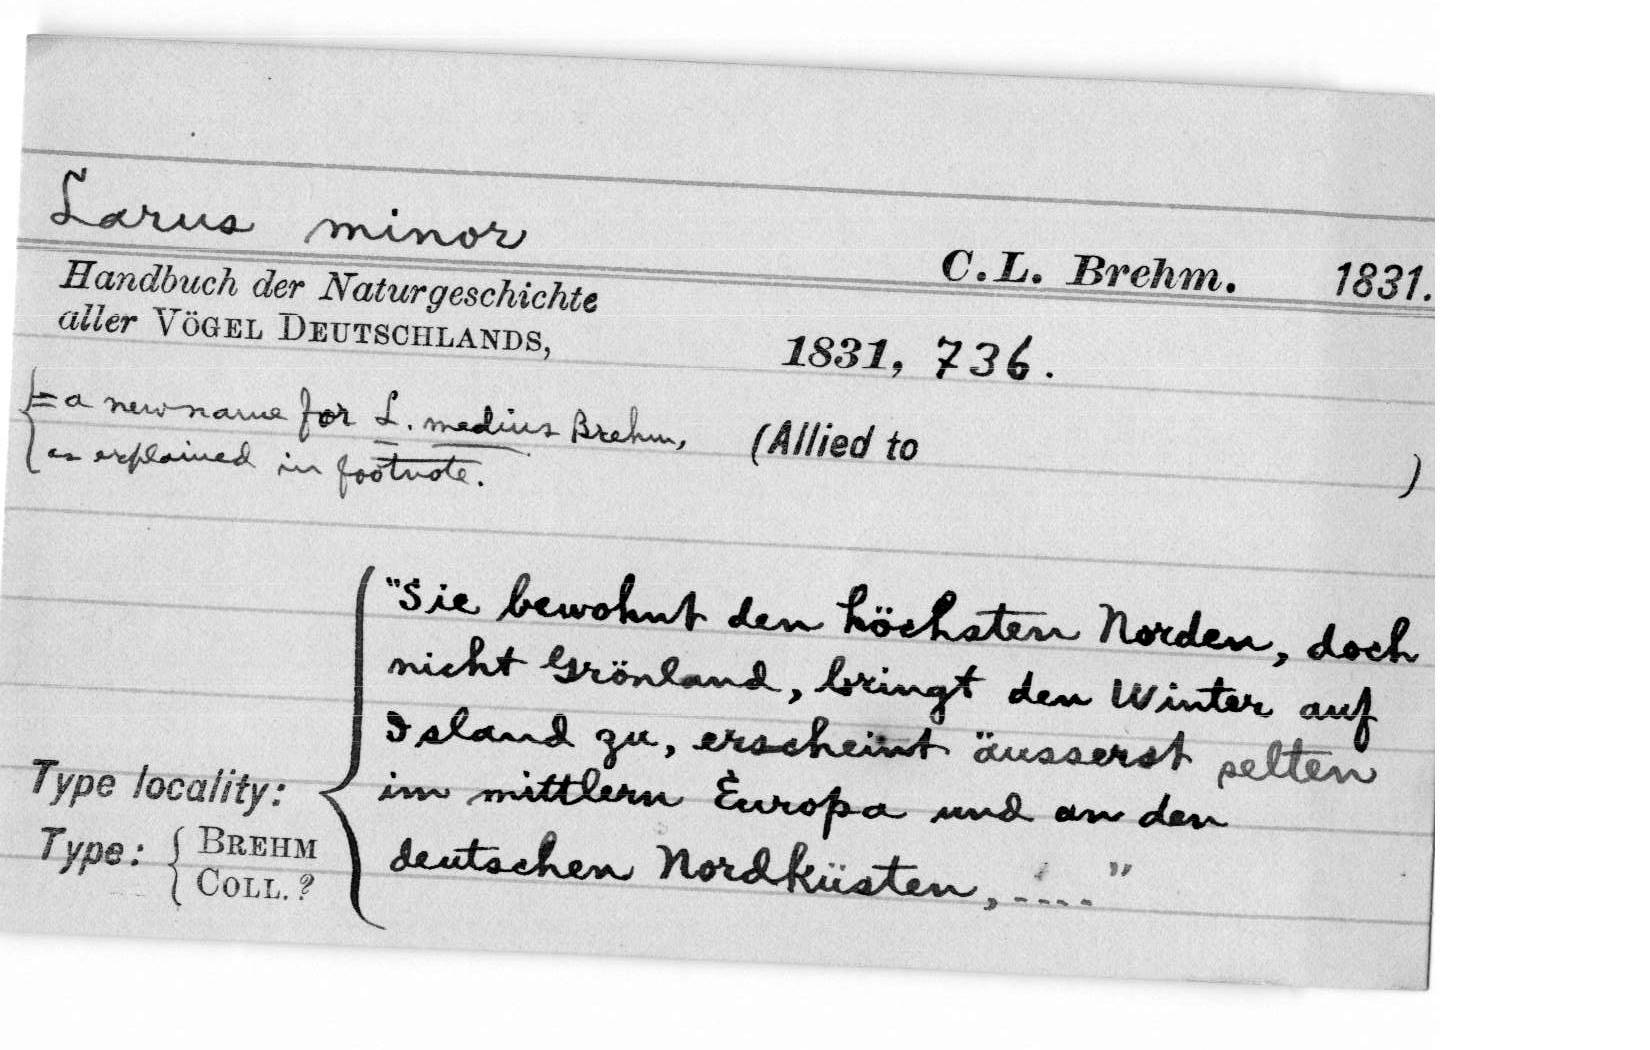 Larus minor
C.L. Brehm. 1831.
Handbuch der Naturgeschichte
aller VÖGEL DEUTSCHLANDS,
1831, 736.
{= a new name for L. medius Brehm,
as explained in footnote.
(Allied to )
"Sie bewohnt den höchsten Norden, doch
nicht Grönland, bringt den Winter auf
Island zu, erscheint äusserst selten
im mittlern Europa und an den
deutschen Nordküsten, ...."
Type locality:
Type: { BREHM
COLL. ?